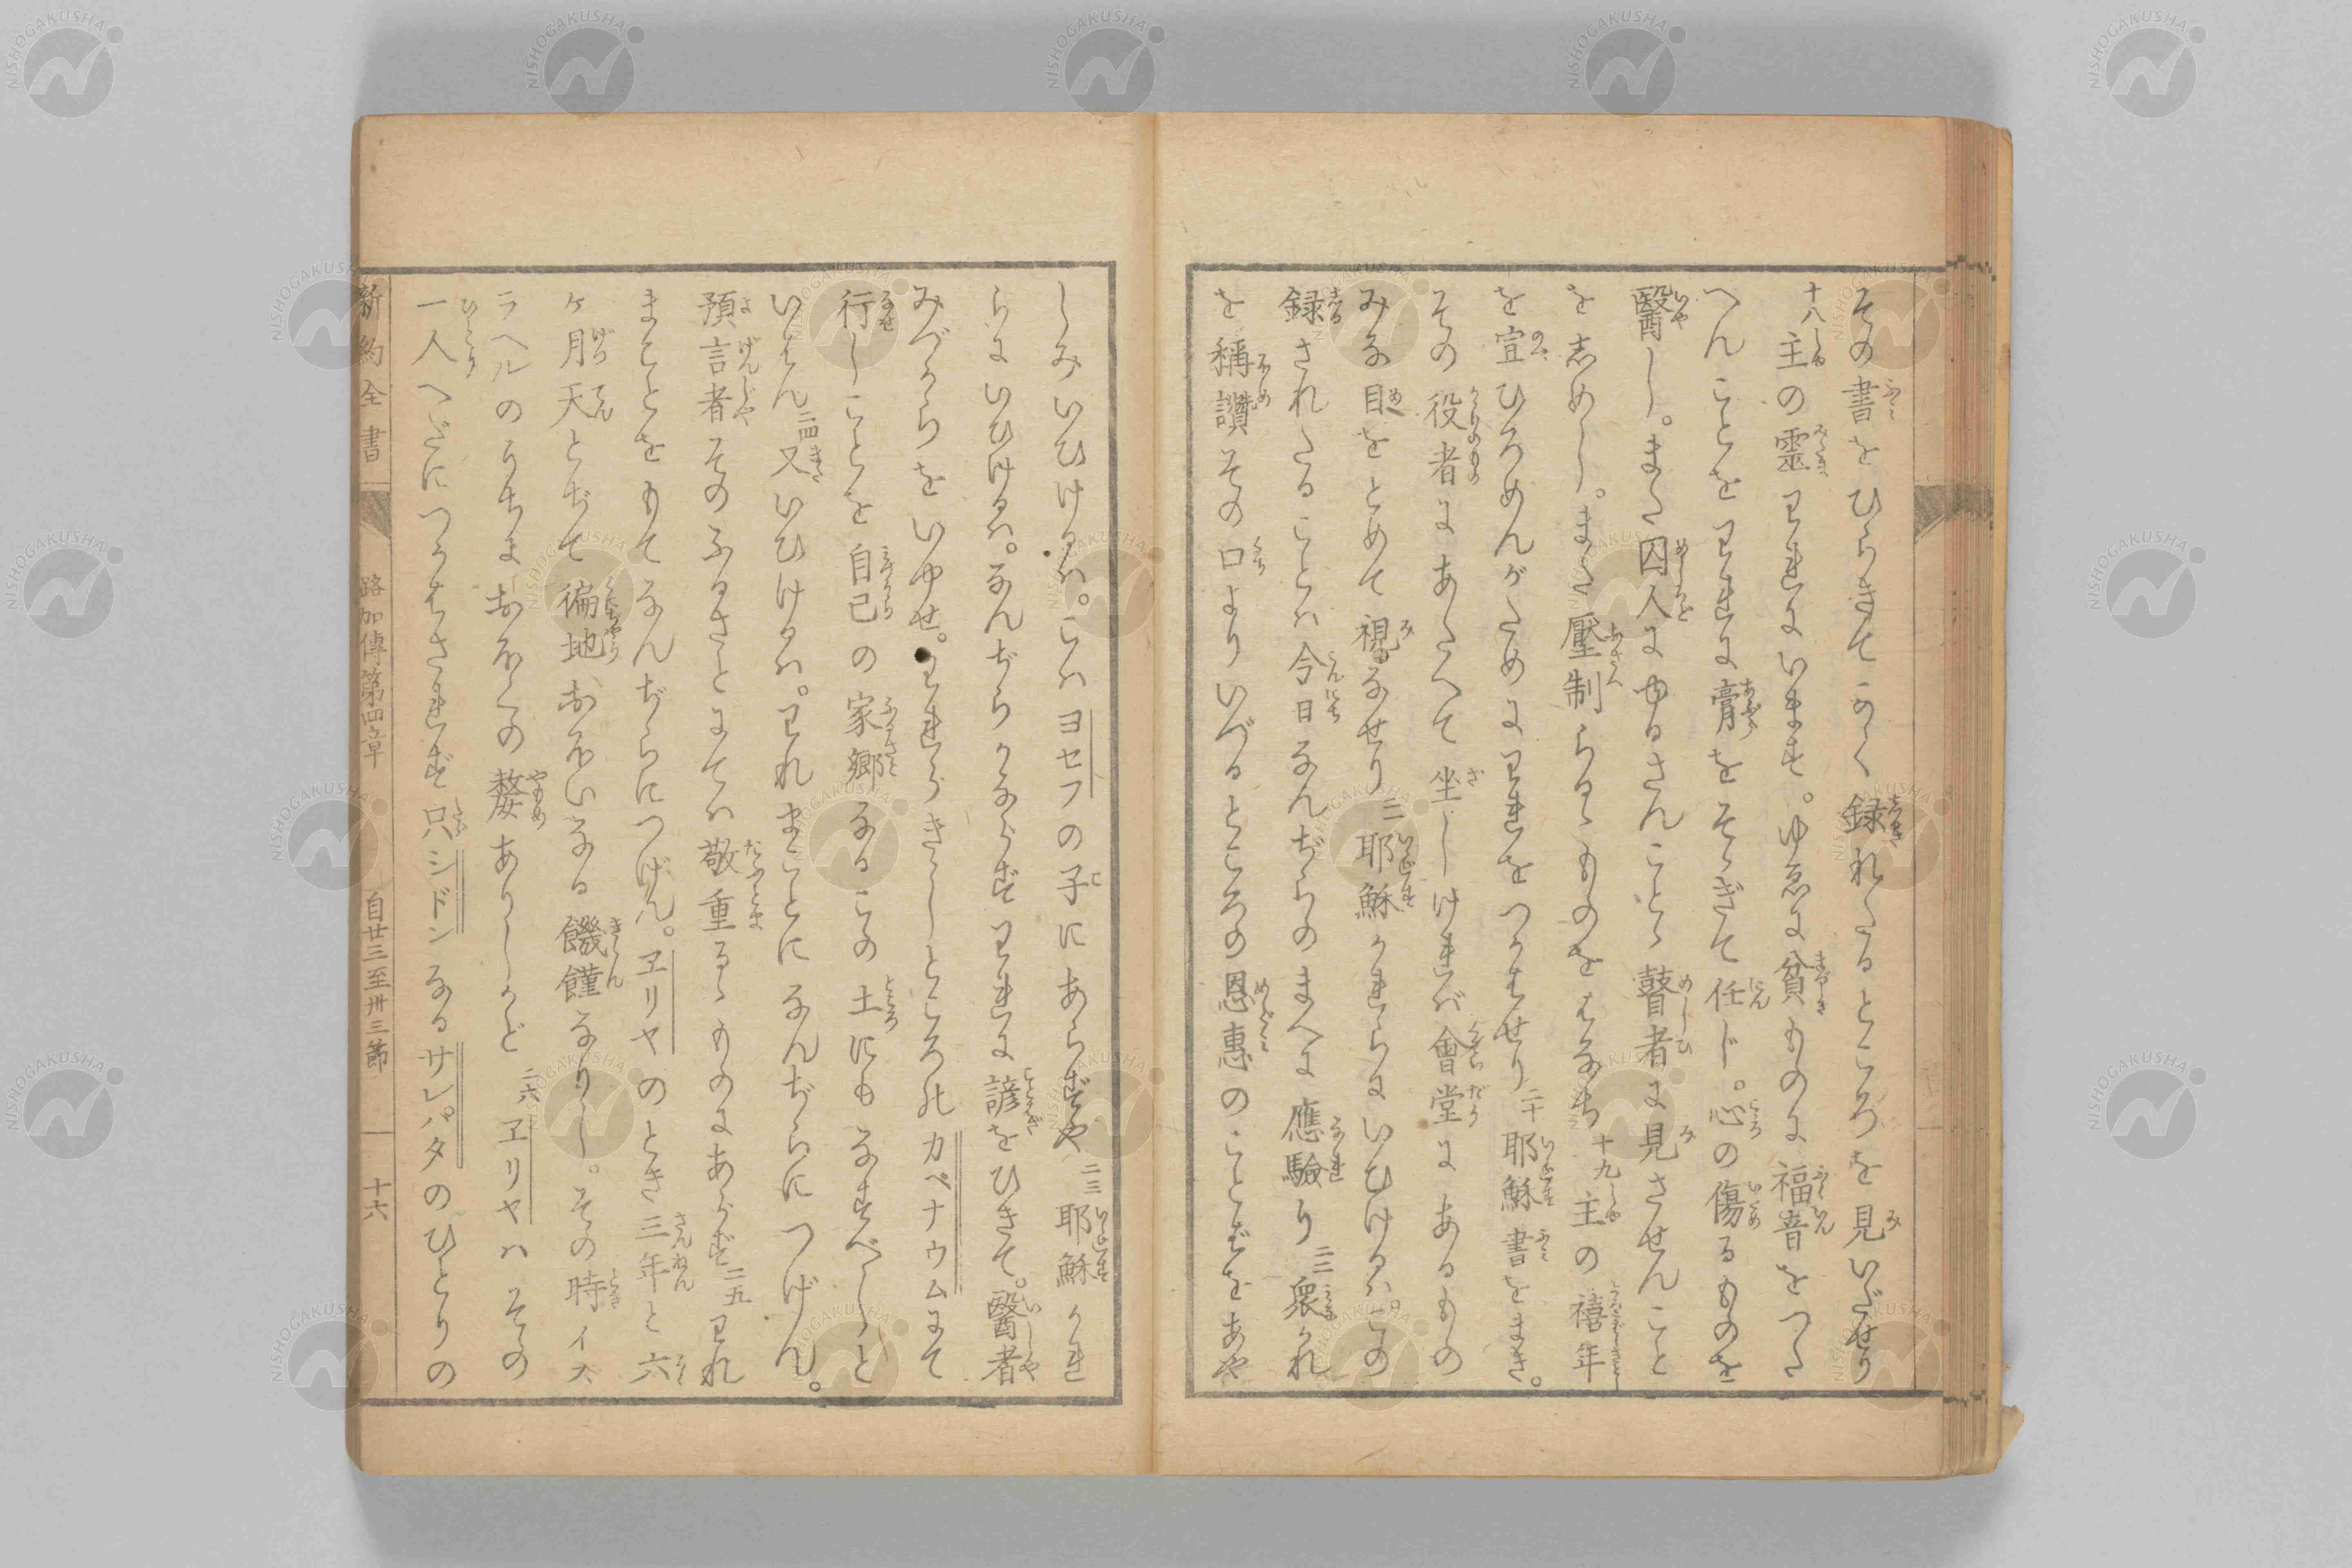 その書をひらきてかく録れたるところを見いだせり
十八主の靈われにいます。ゆゑに貧ものに福音をつた
へんことをわれに膏をそゝぎて任じ。心の傷るものを
醫し。また囚人にゆるさんことゝ瞽者に見させんこと
を志めし。また壓制らるゝものをはなち十九主の禧年
を宣ひろめんがためにわれをつかはせり二十耶穌書をまき。
その役者にあたへて坐しければ會堂にあるもの
みな目をとめて視なせり二一耶穌かれらにいひけるハ。この
録されたることハ今日なんぢらのまへに應驗り二二衆かれ
を稱讃その口よりいづるところの恩惠のことばをあや
しみいひけるハ。こハヨセフの子にあらずや二三耶穌かれ
らにいひけるハ。なんぢらかならずわれに諺をひきて。醫者
みづからをいやせ。われらがきゝしところのカペナウムにて
行しことを自己の家郷なるこの土にもなすべしと
いはん二四又いひけるハ。われまことになんぢらにつげん。
預言者そのふるさとにてハ敬重るゝものにあらず二五われ
まことをもてなんぢらにつげん。エリヤのとき三年と六
ケ月天とぢて徧地おほいなる饑饉なりし。その時イス
ラヘルのうちにおほくの嫠ありしかど二六エリヤハそのの
一人へだにつかはされず只シドンなるサレパタのひとりの
新約全書 路加傳第四章 自廿三至卅三節 十六
NISHOGAKUSHA